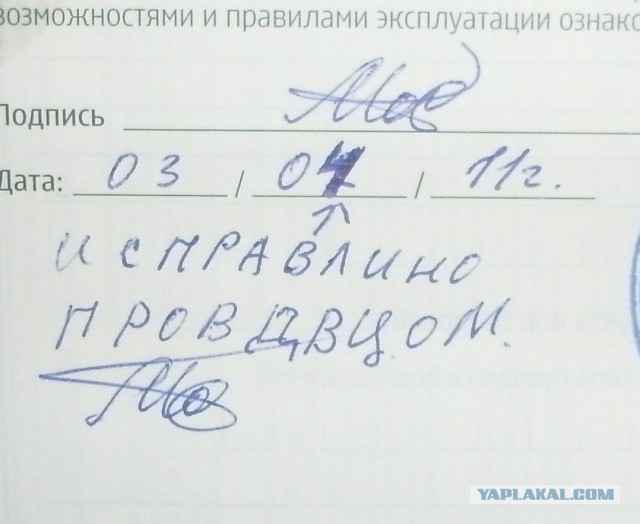 возможностями и правилами эксплуатации ознако
Подпись
Дата: 03 / 04 / 11г.
ИСПРАВЛИНО
ПРОВДВЦОМ.
YAPLAKAL.COM